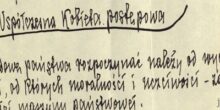 Współczesna Kobieta postępowa
państwa rozpoczynać należy od
od których moralności i uczciwości
państwowej.